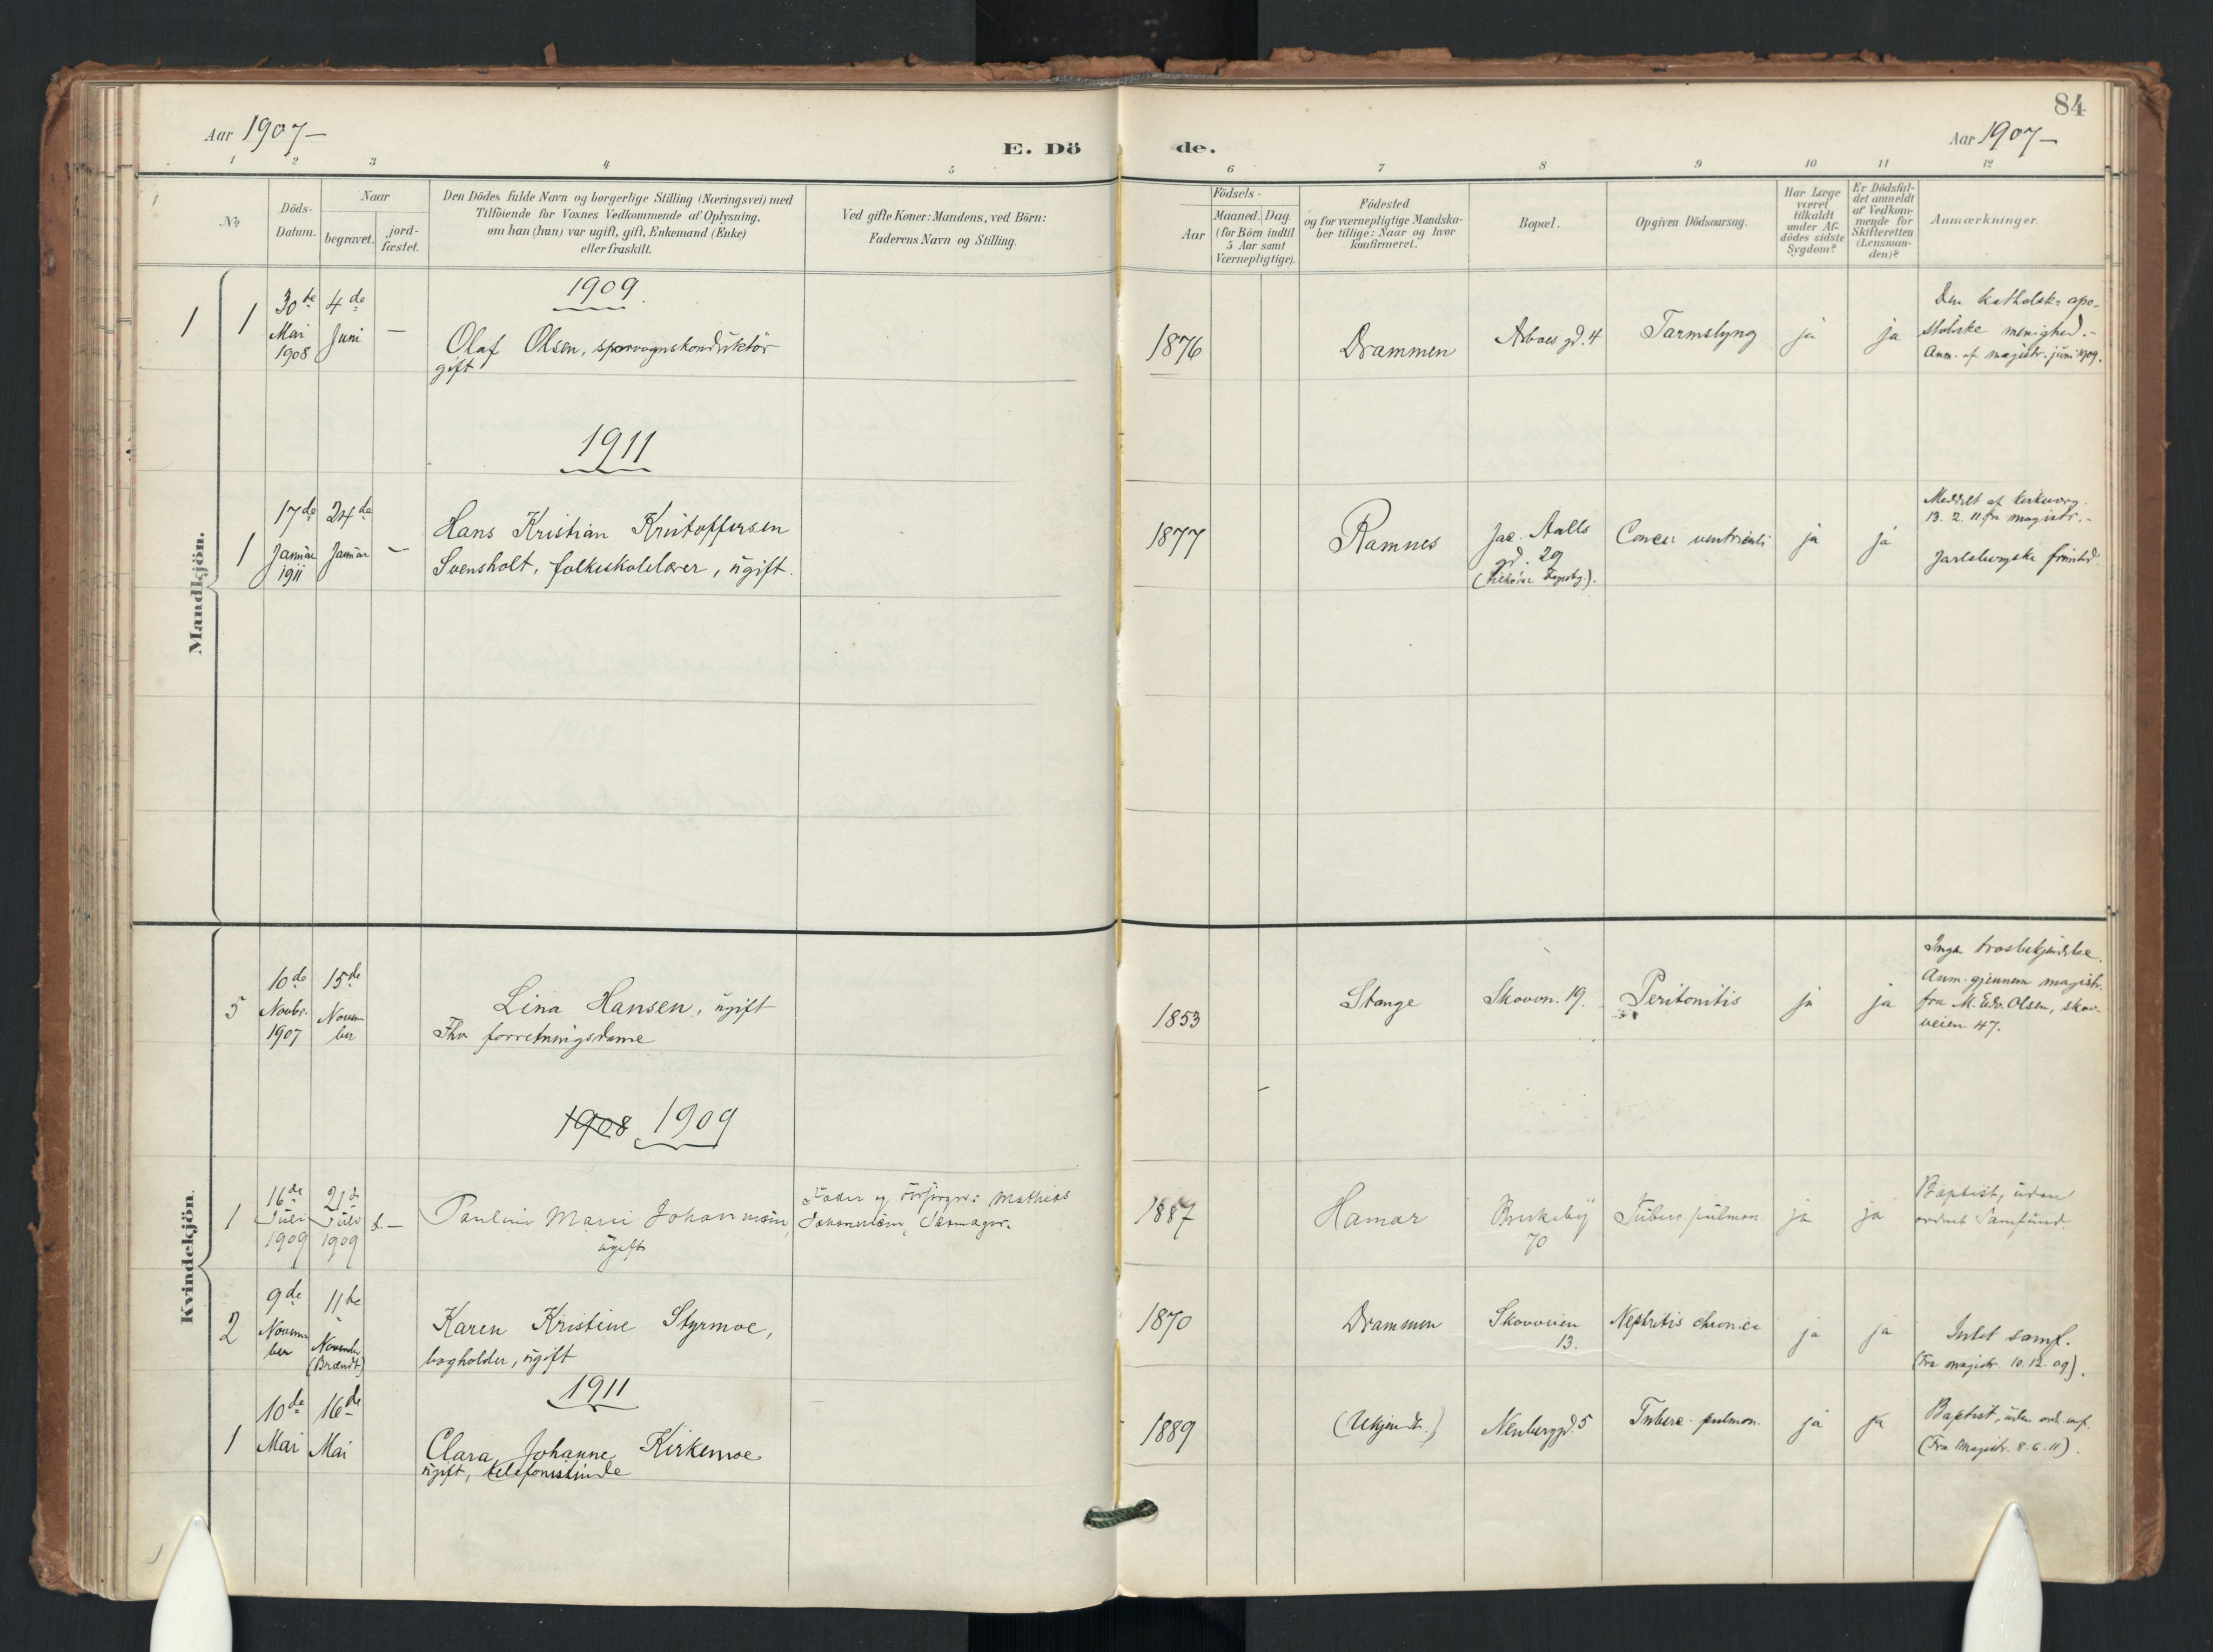 84
Aar 1907—
E. Dö
de.
Aar 1907—
1 2 3 4 5 6 7 8 9 10 11 12
No
Döds-
Datum.
Naar
begravet.
jord-
fæstet.
Den Dödes fulde Navn og borgerlige Stilling (Næringsvei) med
Tilföiende for Voxnes Vedkommende af Oplysning,
om han (hun) var ugift, gift, Enkemand (Enke)
eller fraskilt.
Ved gifte Koner: Mandens, ved Börn:
Faderens Navn og Stilling.
Födsels-
Aar
Maaned. Dag.
(for Börn indtil
5 Aar samt
Værnepligtige).
Födested
og for værnepligtige Mandska-
ber tillige: Naar og hvor
konfirmeret.
Bopæl.
Opgiven Dödsaarsag.
Har Læge
været
tilkaldt
under Af-
dödes sidste
Sygdom?
Er Dödsfal-
det anmeldt
af Vedkom-
mende for
Skifteretten
(Lensman-
den)?
Anmærkninger.
Mandkjön.
1909
1
1
30te
Mai
1908
4de
Juni
—
Olaf Olsen, sporvognskonduktör
gift
1876
Drammen
Arboes gd. 4
Tarmslyng
ja
ja
Den katholsk-apo-
stolske menighed.-
Anm. af magistr. juni 1909.
1911
1
17de
Januar
1911
24de
Januar
—
Hans Kristian Kristoffersen
Svensholt, folkeskolelærer, ugift.
1877
Ramnes
Jac. Aalls
gd. 29
Cancer ventriculi
ja
ja
Meddelt af
13. 2. 11 fra magistr.-
Jarlsbergske frimed.
Kvindekjön.
5
10de
Novbr.
1907
15de
Novem-
ber
Lina Hansen, ugift
Fhv. forretningsdame
1853
Stange
Skovvn. 19.
Peritonitis
ja
ja
Ingen trosbekjendelse.
Anm. gjennem magistr.
fra M. Edv. Olsen, skov-
veien 47.
1908 1909
1
16de
Juli
1909
21de
Juli
1909
d.—
Pauline Marie Johannesen,
ugift
Fader og Forsørger: Mathias
Johannesen, Skomager.
1887
Hamar
Briskeby
70
Tuberc pulmon.
ja
ja
Baptist, uden
ordnet Samfund.
2
9de
Novem-
ber
11te
November
(Brændt)
Karen Kristine Styrmoe,
bogholder, ugift
1870
Drammen
Skovveien
13.
Nephritis chronica
ja
ja
Intet samf.
(Fra magistr. 10.12.09).
1911
1
10de
Mai
16de
Mai
Clara Johanne Kirkemoe
ugift, telefonistinde
1889
(Ukjendt.)
Neuberggd. 5
Tuberc. pulmon.
ja
ja
Baptist, uden ord.
(Fra Magistr. 8.6.11).